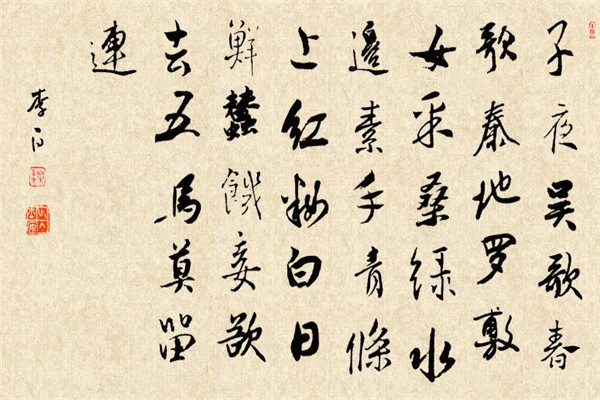 子夜吴歌春
歌秦地罗敷
女采桑绿水
邊素手青條
上红粉白日
鮮蠶饑妾欲
去五馬莫留
連
李白